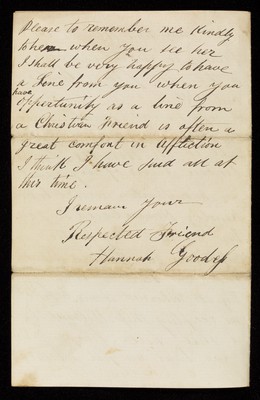 Please to remember me Kindly
to her when you see her
I shall be very happy to have
a Line from you when you
have
opportunity as a line from
a Christian Friend is often a
great comfort in affliction
I think I have said all at
this time.
I remain your
Respected Friend
Hannah